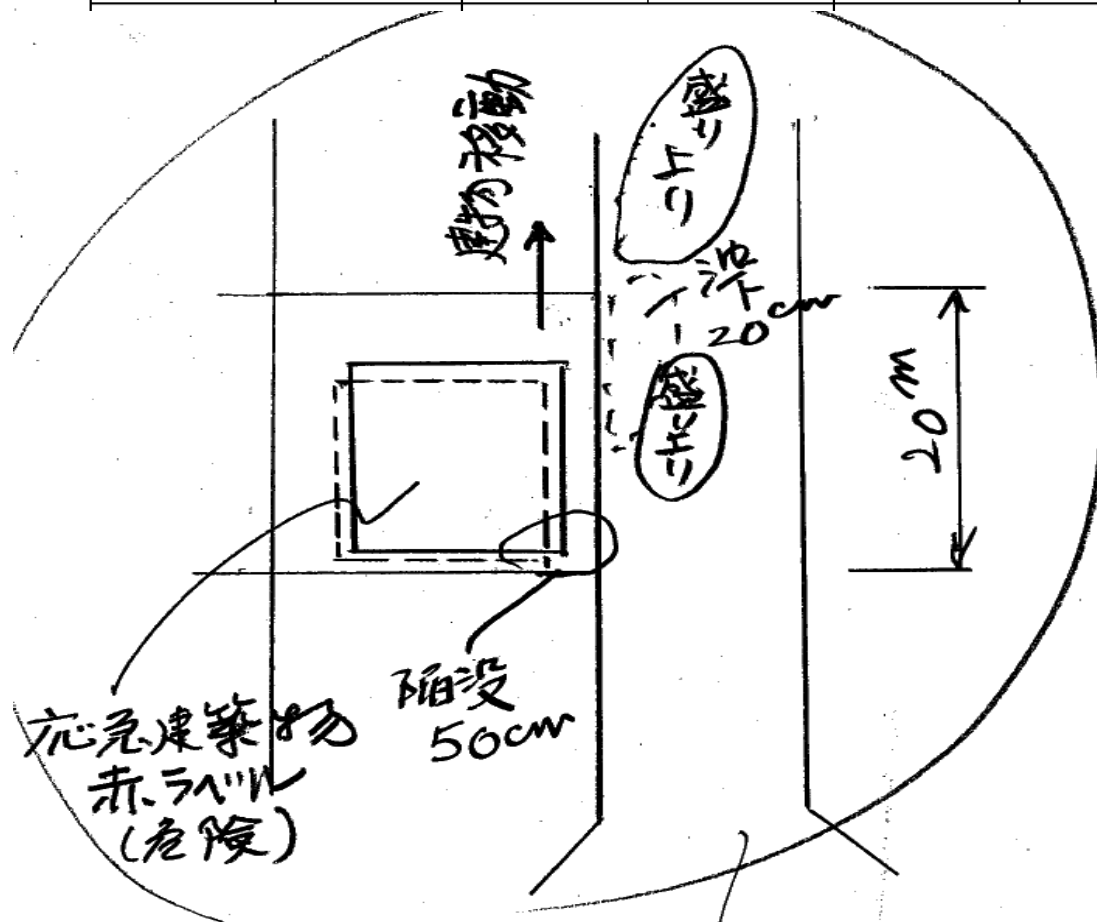 建物移動
盛り上り
沈下
20cm
盛り上り
20m
陥没
50cm
応急建築物
赤ラベル
(危険)